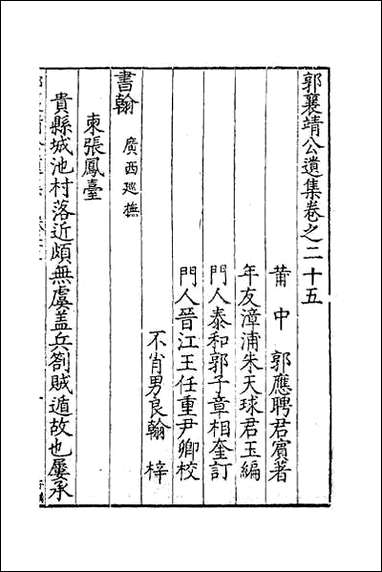 郭襄靖公遺集卷之二十五
莆中 郭應聘君賓著
年友漳浦朱天球君玉編
門人泰和郭子章相奎訂
門人晉江王任重尹卿校
不肖男良翰 梓
書翰 廣西廵撫
柬張鳳臺
貴縣城池村落近頗無虞盖兵劄賊遁故也屢承